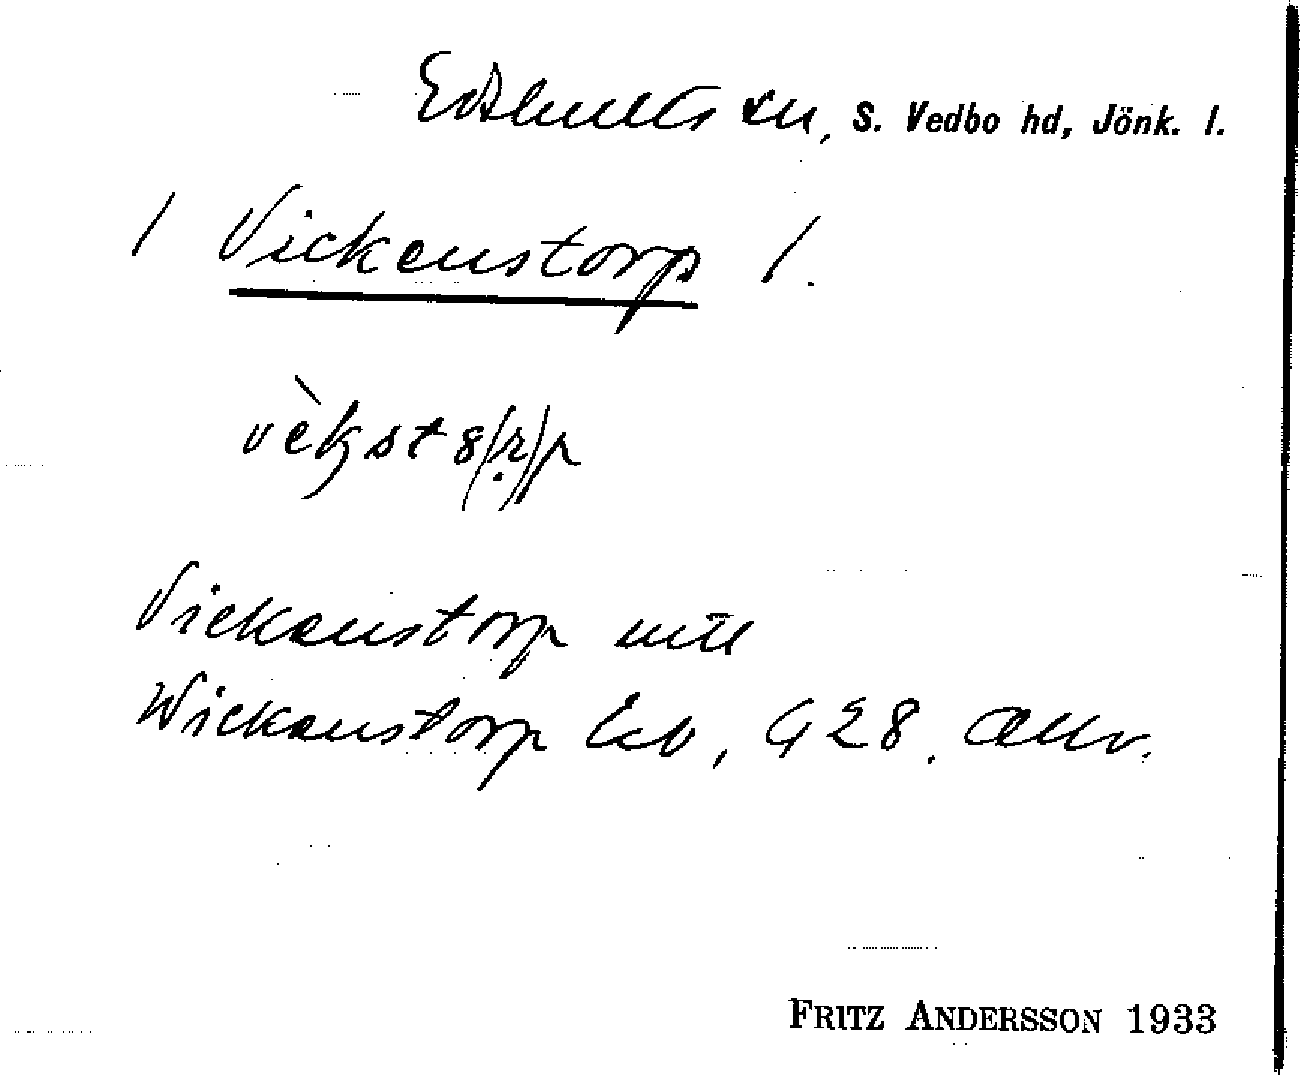 Edshults sn, S. Vedbo hd, Jönk. l.
/ Vickenstorp /.
vèkst8(r)p
Vickanstorp mtl
Wickanstorp Eck, G 28.
FRITZ ANDERSSON 1933